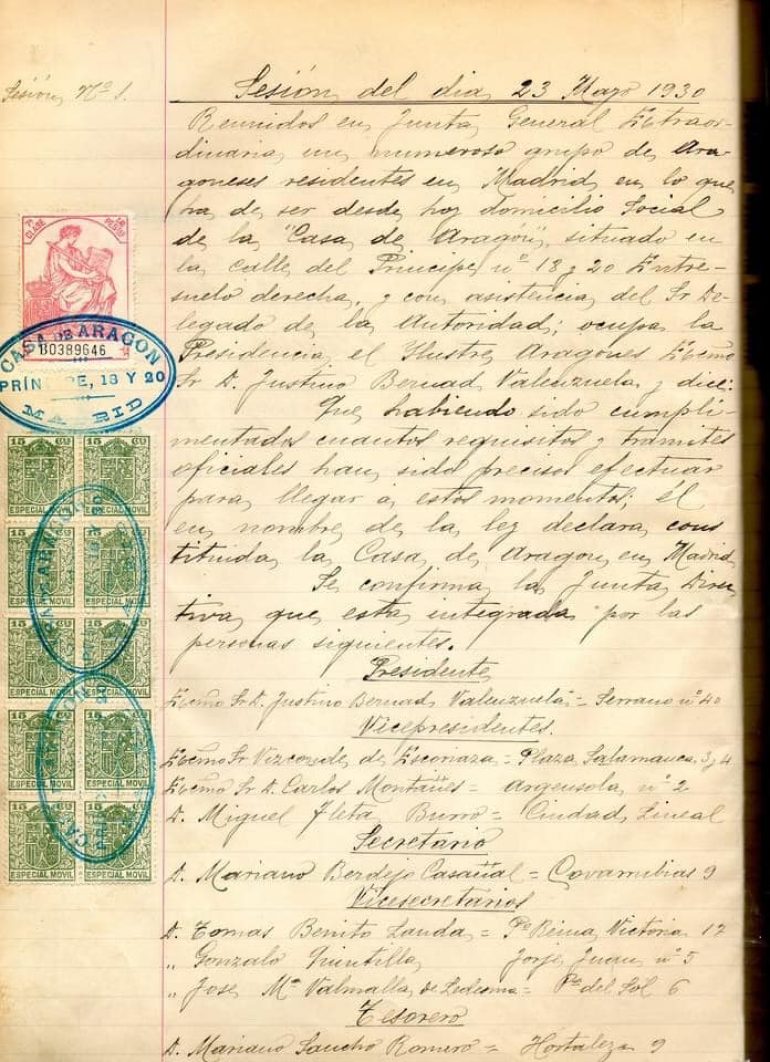 Sesión Nº 1.
Sesión del dia 23 Mayo 1930
Reunidos en Junta General Extraor-
dinaria, un numeroso grupo de Ara-
goneses residentes en Madrid, en lo que
ha de ser desde hoy domicilio Social
de la "Casa de Aragón", situado en
la calle del Principe nº 18 y 20 Entre-
suelo derecha, y con asistencia del Sr De-
legado de la Autoridad; ocupa la
Presidencia el Ilustre Aragones Excmo
Sr D. Justino Bernad Valenzuela y dice:
Que habiendo sido cumpli-
mentados cuantos requisitos y tramites
oficiales han sido precisos efectuar
para llegar á estos momentos; él
en nombre de la ley declara cons
tituida la Casa de Aragon en Madrid
Se confirma la Junta Direc
tiva que esta integrada por las
personas siguientes.
Presidente
Excmo Sr D. Justino Bernad Valenzuela = Serrano nº 40
Vicepresidentes.
Excmo Sr Vizconde de Escoriaza = Plaza Salamanca 3 y 4
Excmo Sr D. Carlos Montañes = Argensola nº 2
D. Miguel Fleta Burro = Ciudad Lineal
Secretario
D. Mariano Berdejo Casañal = Covarrubias 9
Vicesecretarios
D. Tomas Benito Landa = Pº Reina Victoria 17
" Gonzalo Quintilla Jorje Juan nº 5
" Jose Mª Valmalla de Ledesma = Pª del Sol 6
Tesorero
D. Mariano Sancho Romero = Hortaleza 9
7ª CLASE
B0389646
CASA DE ARAGON
PRÍNCIPE, 18 Y 20
MADRID
15 CS 15 CS
ESPECIAL MOVIL ESPECIAL MOVIL
15 CS 15 CS
ESPECIAL MOVIL ESPECIAL MOVIL
15 CS 15 CS
ESPECIAL MOVIL ESPECIAL MOVIL
15 CS 15 CS
ESPECIAL MOVIL ESPECIAL MOVIL
15 CS 15 CS
ESPECIAL MOVIL ESPECIAL MOVIL